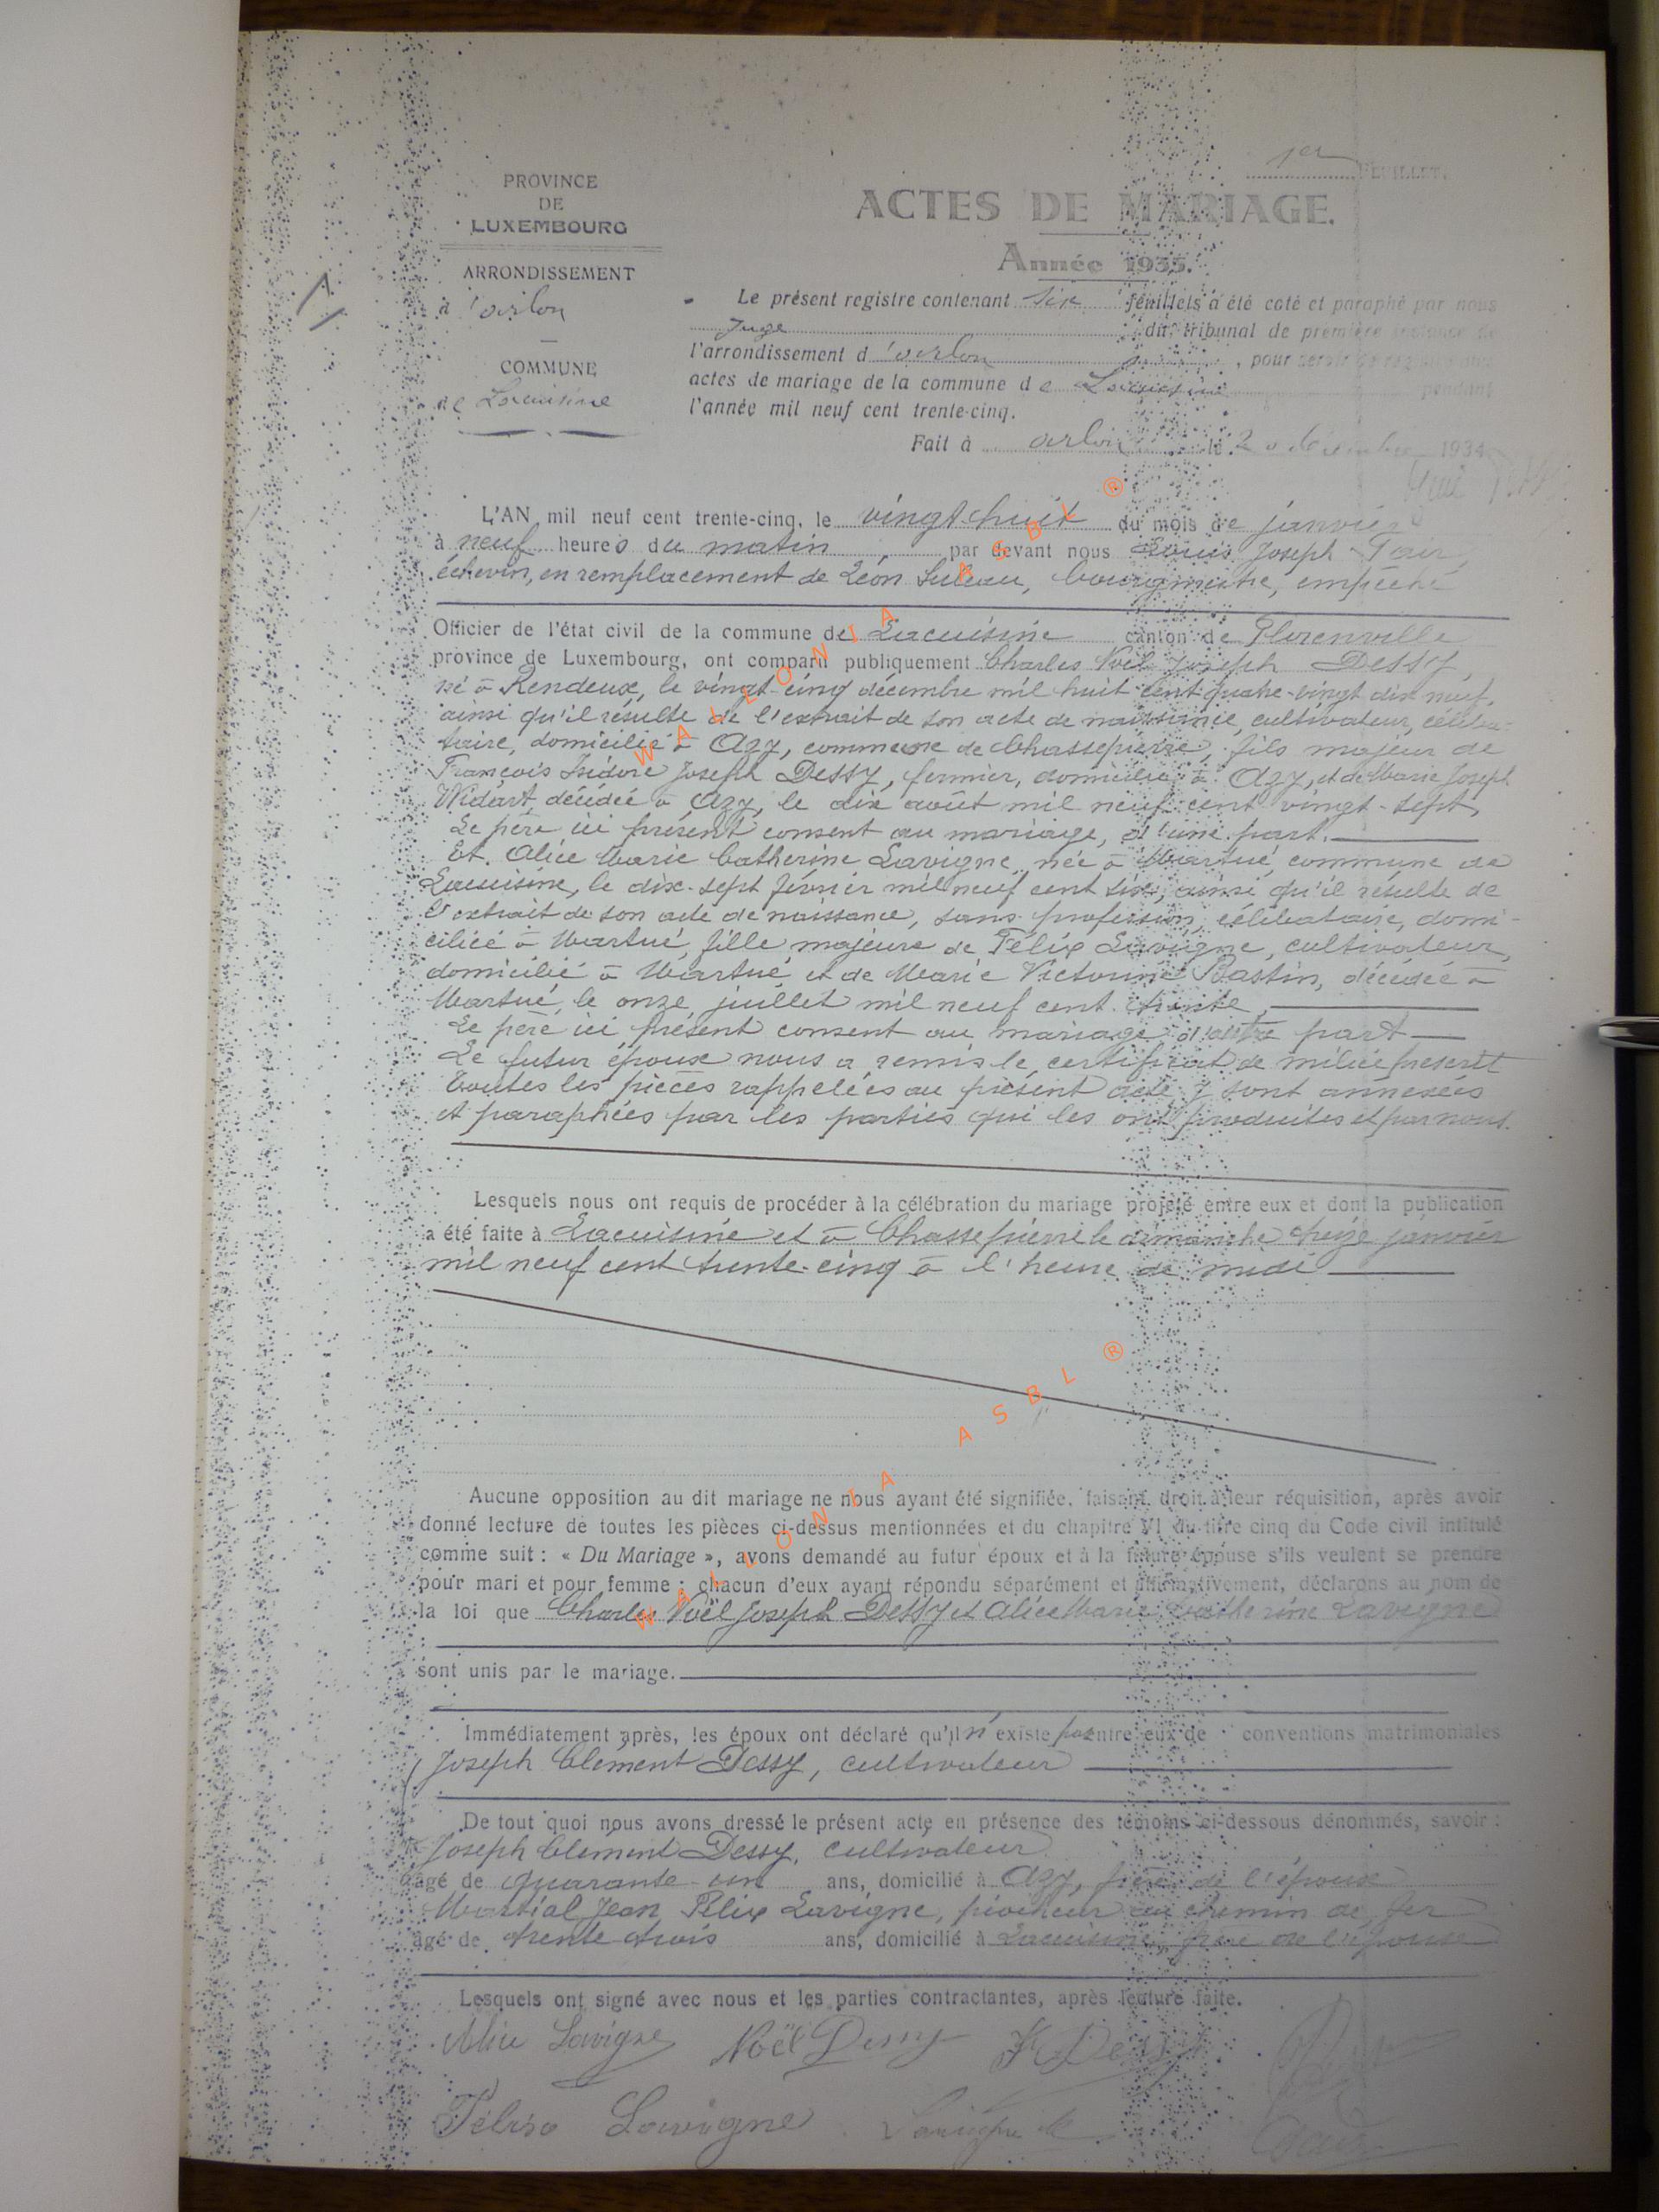 1er FEUILLET.
PROVINCE
DE
LUXEMBOURG
ARRONDISSEMENT
d'arlon
COMMUNE
de Lacuisine
ACTES DE MARIAGE.
Année 1935.
Le présent registre contenant six feuillets a été coté et paraphé par nous
Juge du tribunal de première instance de
l'arrondissement d'arlon, pour servir de registre aux
actes de mariage de la commune de Lacuisine pendant
l'année mil neuf cent trente-cinq.
Fait à arlon le 20 décembre 1934
L'AN mil neuf cent trente-cinq, le vingt-huit du mois de janvier
à neuf heures du matin, par devant nous Louis Joseph
échevin, en remplacement de Léon Suleau, bourgmestre, empêché
Officier de l'état civil de la commune de Lacuisine canton de Florenville
province de Luxembourg, ont comparu publiquement Charles Noël Joseph Dessy,
né à Rendeux, le vingt-cinq décembre mil huit cent quatre-vingt dix neuf,
ainsi qu'il résulte de l'extrait de son acte de naissance, cultivateur, céliba-
taire, domicilié à Azy, commune de Chassepierre, fils majeur de
François Isidore Joseph Dessy, fermier, domicilié à Azy, et de Marie Joseph
Widart, décédée à Azy, le dix août mil neuf cent vingt-sept,
Le père ici présent consent au mariage, d'une part.
Et. Alice Marie Catherine Lavigne, née à Martué, commune de
Lacuisine, le dix-sept février mil neuf cent six, ainsi qu'il résulte de
l'extrait de son acte de naissance, sans profession, célibataire, domi-
ciliée à Martué, fille majeure de Félix Lavigne, cultivateur,
domicilié à Martué et de Marie Victorine Bastin, décédée à
Martué, le onze juillet mil neuf cent trente,
Le père ici présent consent au mariage, d'autre part
Le futur époux nous a remis le certificat de milice prescrit
Toutes les pièces rappelées au présent acte y sont annexées
et paraphées par les parties qui les ont produites et par nous.
Lesquels nous ont requis de procéder à la célébration du mariage projeté entre eux et dont la publication
a été faite à Lacuisine et à Chassepierre le dimanche treize janvier
mil neuf cent trente-cinq à l'heure de midi
Aucune opposition au dit mariage ne nous ayant été signifiée, faisant droit à leur réquisition, après avoir
donné lecture de toutes les pièces ci-dessus mentionnées et du chapitre VI du titre cinq du Code civil intitulé
comme suit : « Du Mariage », avons demandé au futur époux et à la future épouse s'ils veulent se prendre
pour mari et pour femme ; chacun d'eux ayant répondu séparément et affirmativement, déclarons au nom de
la loi que Charles Noël Joseph Dessy et Alice Marie Catherine Lavigne
sont unis par le mariage.
Immédiatement après, les époux ont déclaré qu'il n'existe pas entre eux de conventions matrimoniales
Joseph Clément Dessy, cultivateur
De tout quoi nous avons dressé le présent acte en présence des témoins ci-dessous dénommés, savoir :
Joseph Clément Dessy, cultivateur
âgé de quarante-un ans, domicilié à Azy, frère de l'époux
Martial Jean Félix Lavigne, piocheur au chemin de fer
âgé de trente-trois ans, domicilié à Lacuisine, frère de l'épouse
Lesquels ont signé avec nous et les parties contractantes, après lecture faite.
Alice Lavigne Noël Dessy Dessy
Félix Lavigne Lavigne M
WALLONIA ASBL ®
WALLONIA ASBL ®